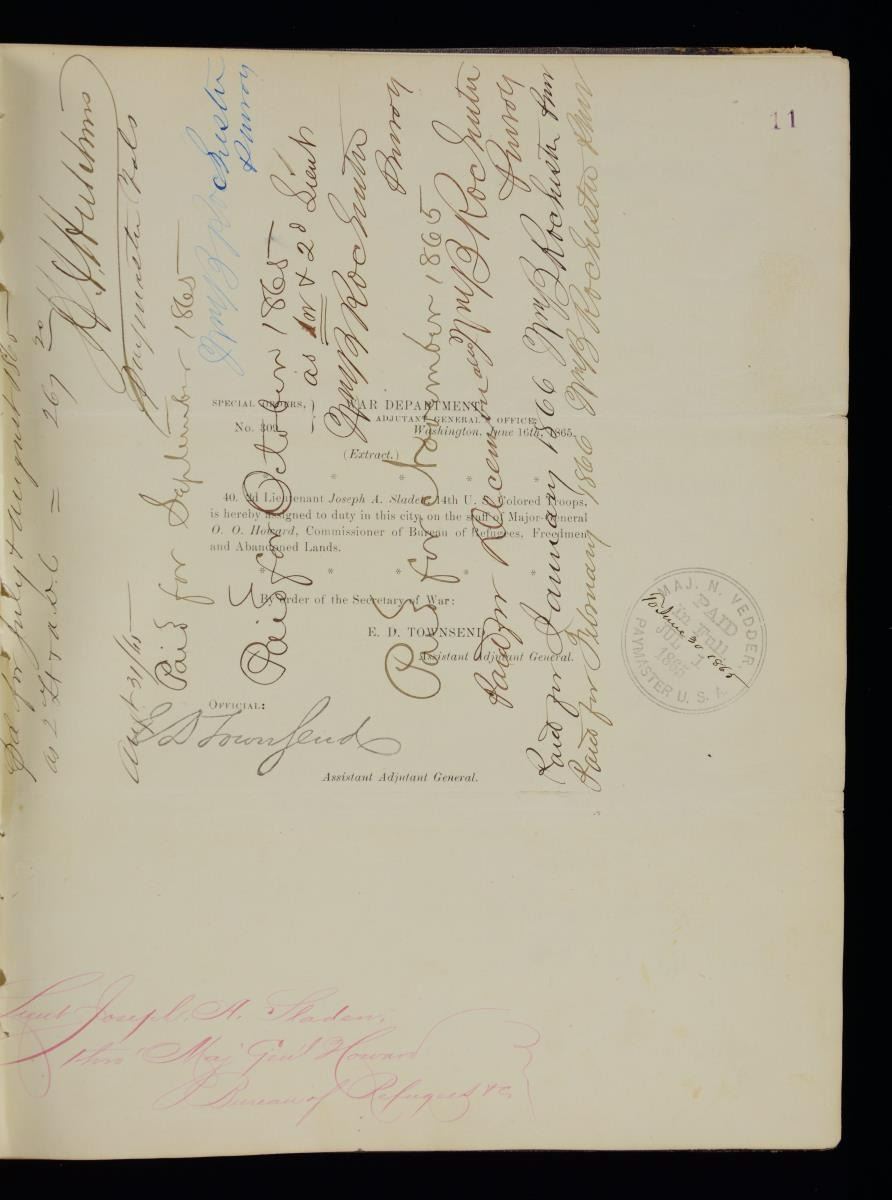 11
SPECIAL ORDERS, } WAR DEPARTMENT,
ADJUTANT GENERAL'S OFFICE,
No. 309. Washington, June 16th, 1865.
(Extract.)
* * * *
40. 2d Lieutenant Joseph A. Sladen, 14th U. S. Colored Troops,
is hereby assigned to duty in this city, on the staff of Major-General
O. O. Howard, Commissioner of Bureau of Refugees, Freedmen
and Abandoned Lands.
* * * * *
By order of the Secretary of War:
E. D. TOWNSEND,
Assistant Adjutant General.
OFFICIAL:
E D Townsend
Assistant Adjutant General.
Pd for July & August 1865
as 2 Lt & a.d.c = 267 20
Hutchins
Paymaster Vols
Augt 31/65
Paid for September 1865
Wm B Rochester
Paid for October 1865
as 1st & 2d Lieut
Wm B Rochester
Paid for November 1865
Paid for December
Wm B Rochester
Paid for January 1866 Wm B Rochester
Paid for February 1866 Wm B Rochester
MAJ. N. VEDDER.
PAID
in Full
JUL 1
1865
PAYMASTER U. S. A.
To June 30 1865
Lieut Joseph. A. Sladen,
Thro' Maj Gen'l Howard
Bureau of Refugees &c,